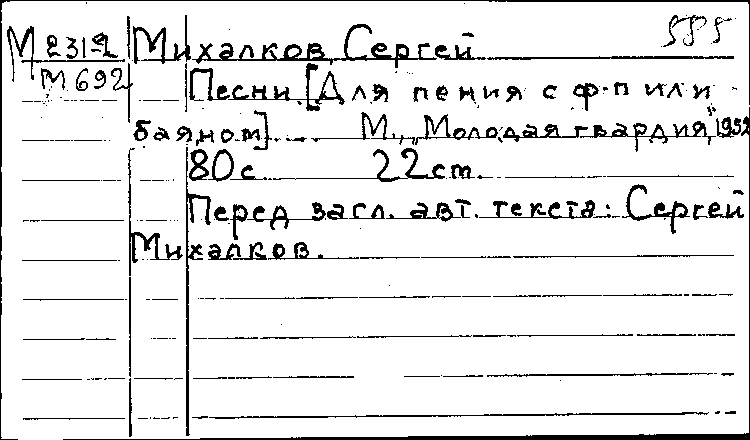 585
М 231-2 Михалков, Сергей
М 692
Песни. [Для пения с ф-п или
баяном] .... М., „Молодая гвардия," 1952
80с 22 cm.
Перед загл. авт. текста: Сергей
Михалков.